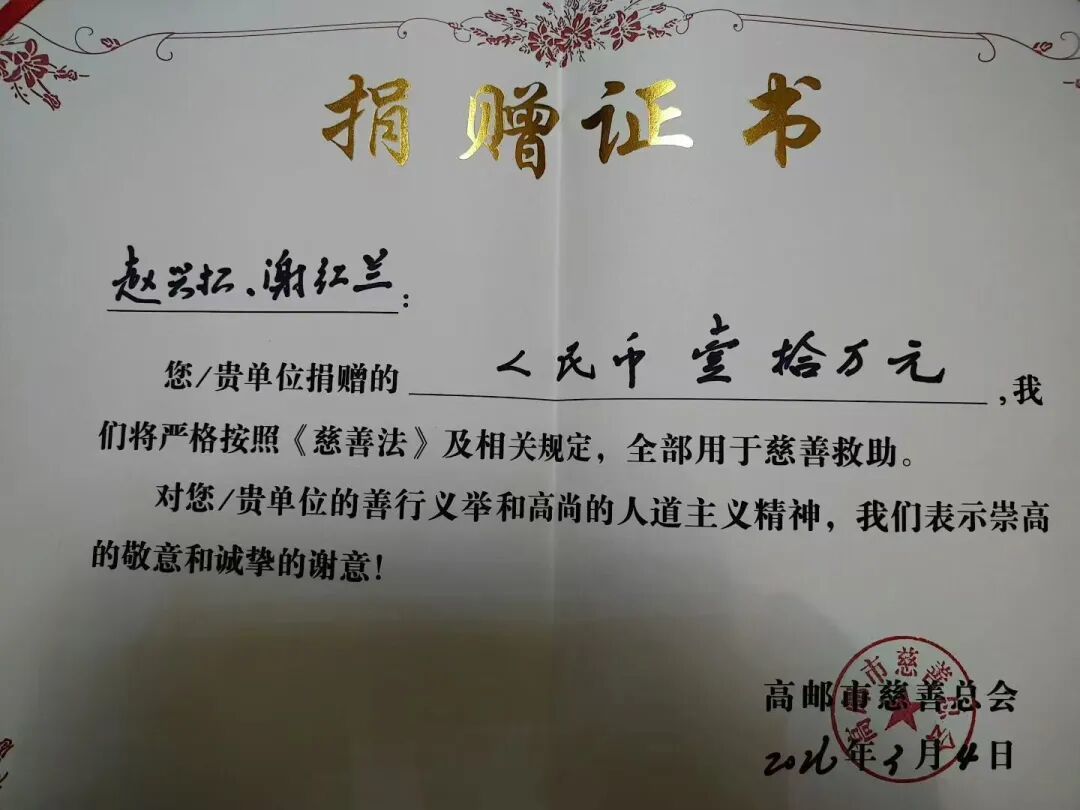 捐赠证书
赵兴扣、谢红兰:
您/贵单位捐赠的 人民币 壹拾万元 ,我
们将严格按照《慈善法》及相关规定,全部用于慈善救助。
对您/贵单位的善行义举和高尚的人道主义精神,我们表示崇高
的敬意和诚挚的谢意!
高邮市慈善总会
高邮市慈善总会
2026年3月4日